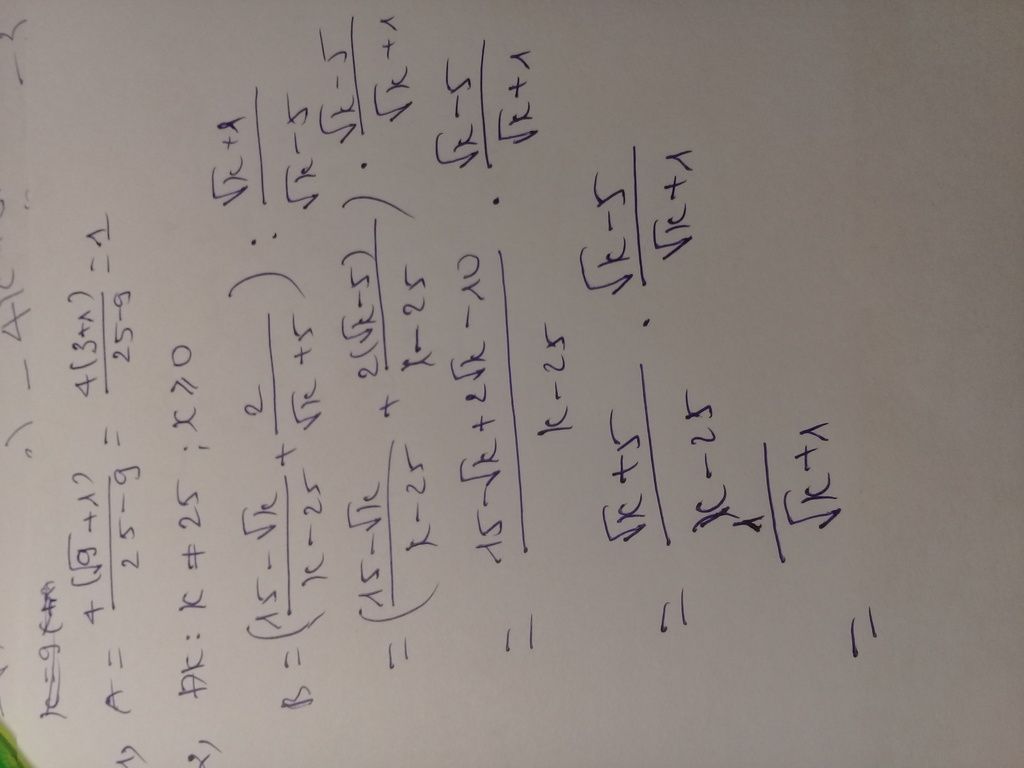 1) A = 4(√9+1)/(25-9) = 4(3+1)/(25-9) = 1
2) ĐK: x ≠ 25 ; x ≥ 0
B = ((15-√x)/(x-25) + 2/(√x+5)) : (√x+1)/(√x-5)
= ((15-√x)/(x-25) + 2(√x-5)/(x-25)) · (√x-5)/(√x+1)
= (15-√x+2√x-10)/(x-25) · (√x-5)/(√x+1)
= (√x+5)/(x-25) · (√x-5)/(√x+1)
= 1/(√x+1)